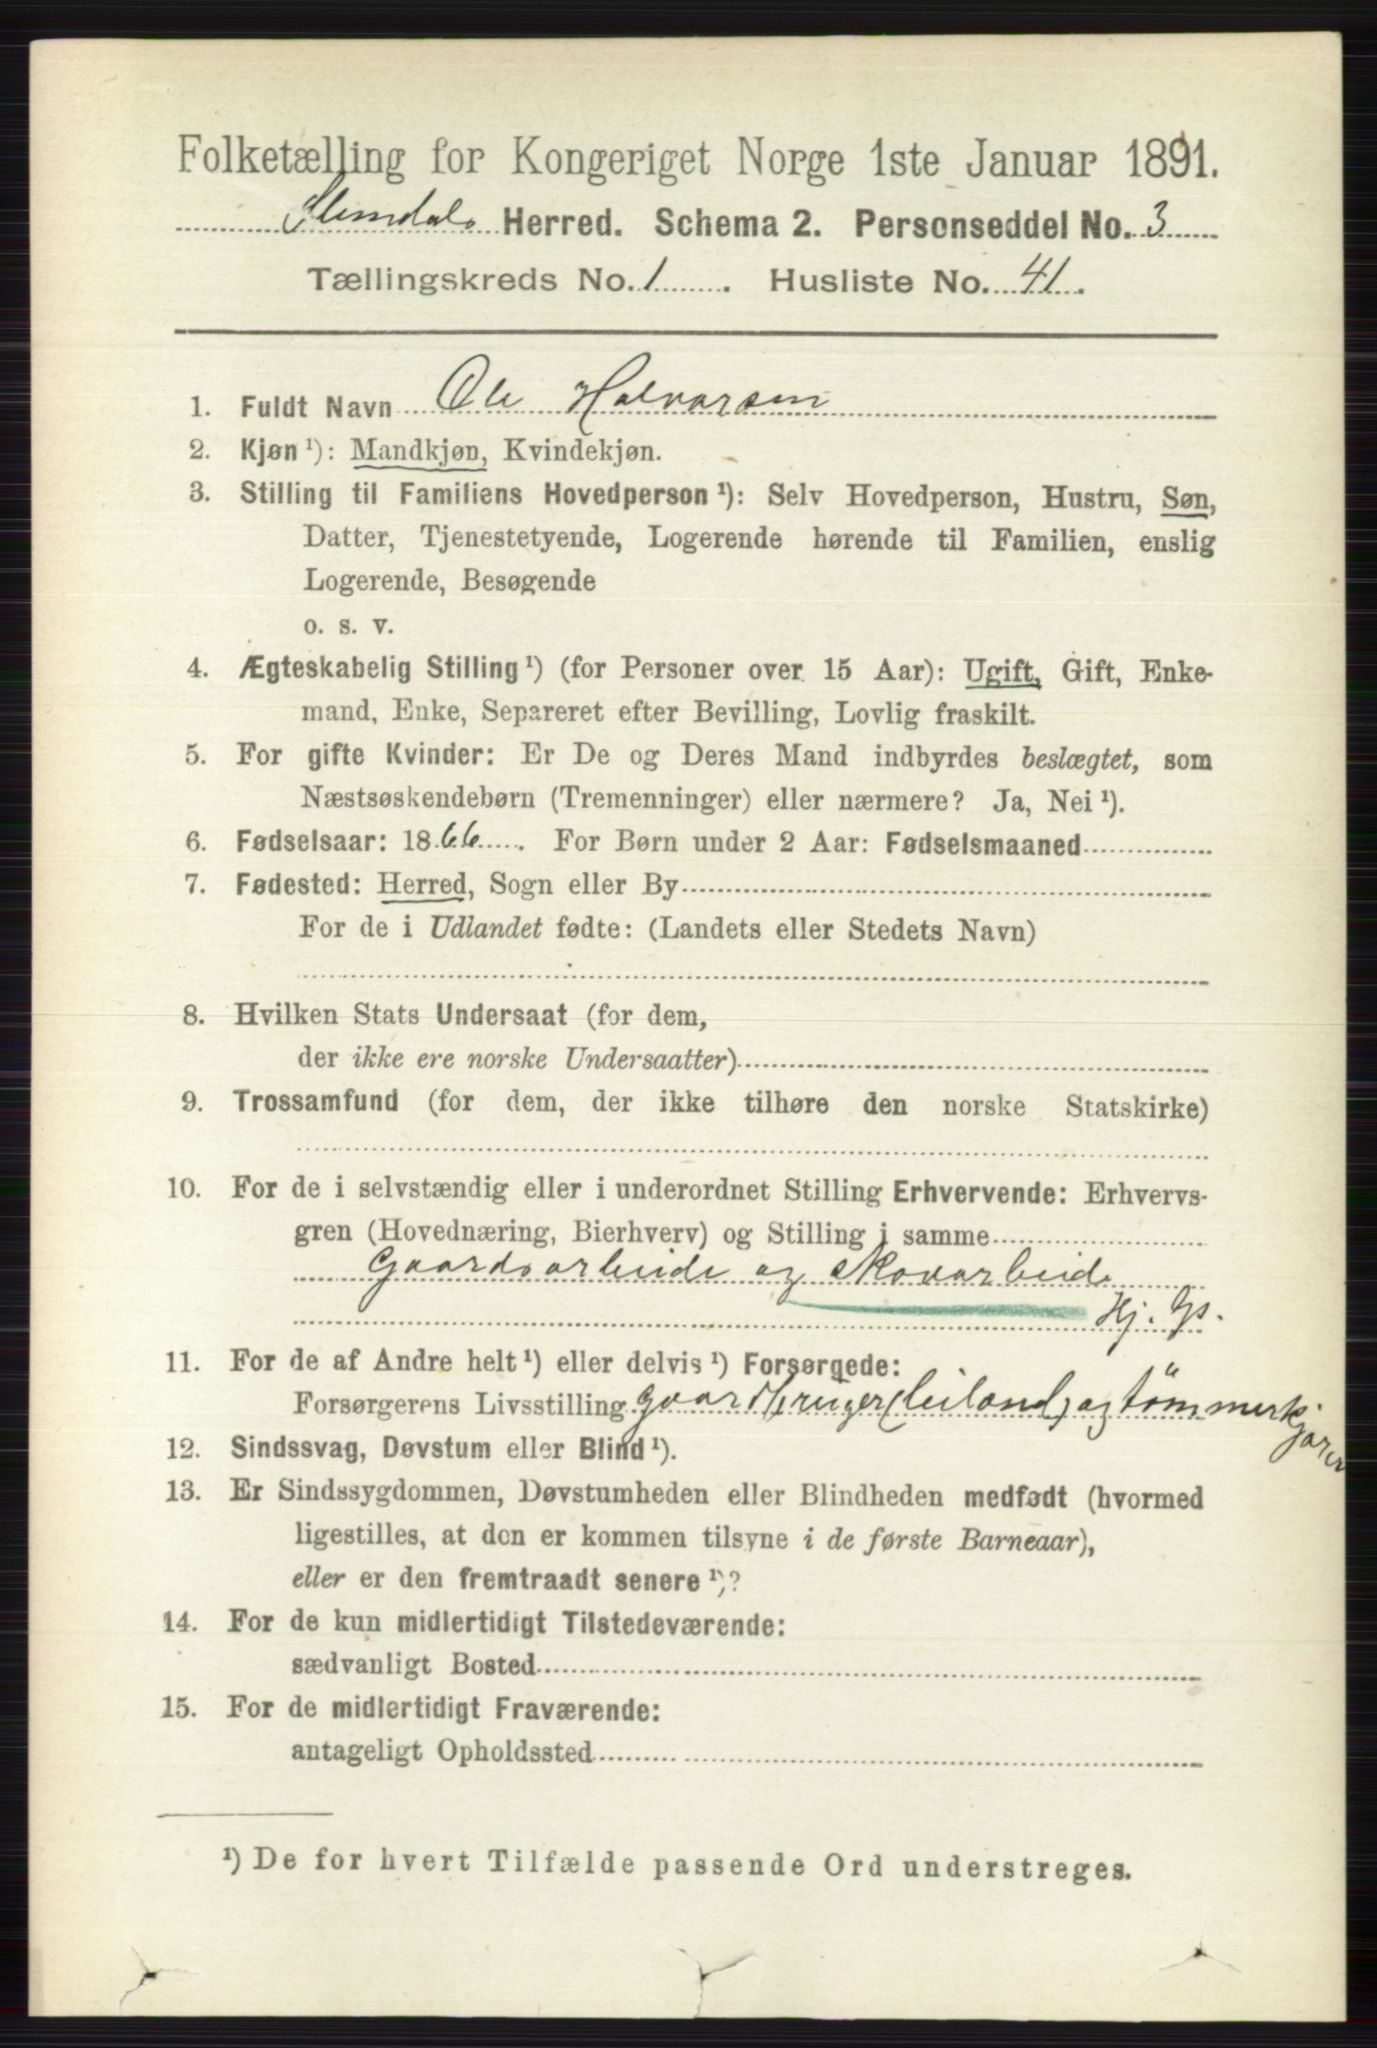 Folketælling for Kongeriget Norge 1ste Januar 1891.
Slemdals Herred. Schema 2. Personseddel No. 3
Tællingskreds No. 1. Husliste No. 41.
1. Fuldt Navn Ole Halvorsen
2. Kjøn ¹): Mandkjøn, Kvindekjøn.
3. Stilling til Familiens Hovedperson ¹): Selv Hovedperson, Hustru, Søn,
Datter, Tjenestetyende, Logerende hørende til Familien, enslig
Logerende, Besøgende
o. s. v.
4. Ægteskabelig Stilling ¹) (for Personer over 15 Aar): Ugift, Gift, Enke-
mand, Enke, Separeret efter Bevilling, Lovlig fraskilt.
5. For gifte Kvinder: Er De og Deres Mand indbyrdes beslægtet, som
Næstsøskendebørn (Tremenninger) eller nærmere? Ja, Nei ¹).
6. Fødselsaar: 1866. For Børn under 2 Aar: Fødselsmaaned
7. Fødested: Herred, Sogn eller By
For de i Udlandet fødte: (Landets eller Stedets Navn)
8. Hvilken Stats Undersaat (for dem,
der ikke ere norske Undersaatter)
9. Trossamfund (for dem, der ikke tilhøre den norske Statskirke)
10. For de i selvstændig eller i underordnet Stilling Erhvervende: Erhvervs-
gren (Hovednæring, Bierhverv) og Stilling i samme
Gaardsarbeide og skovarbeide
Hj. Gs.
11. For de af Andre helt ¹) eller delvis ¹) Forsørgede:
Forsørgerens Livsstilling gaardbruger (leiland) og tömmerkjører
12. Sindssvag, Døvstum eller Blind ¹).
13. Er Sindssygdommen, Døvstumheden eller Blindheden medfødt (hvormed
ligestilles, at den er kommen tilsyne i de første Barneaar),
eller er den fremtraadt senere ¹)?
14. For de kun midlertidigt Tilstedeværende:
sædvanligt Bosted
15. For de midlertidigt Fraværende:
antageligt Opholdssted
¹) De for hvert Tilfælde passende Ord understreges.